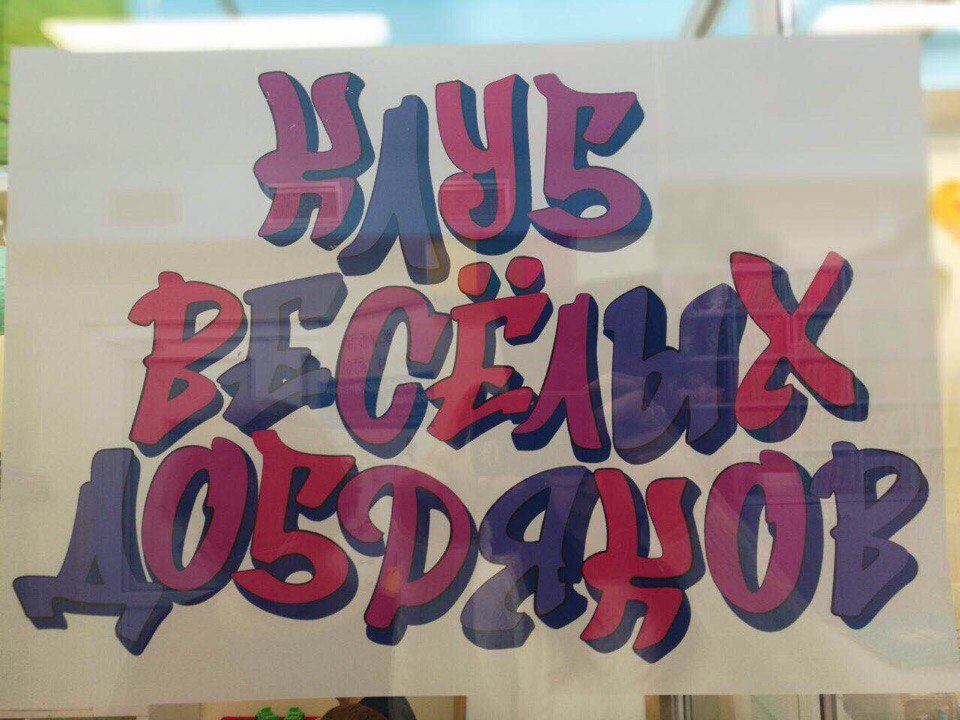 КЛУБ
ВЕСЁЛЫХ
ДОБРЯКОВ